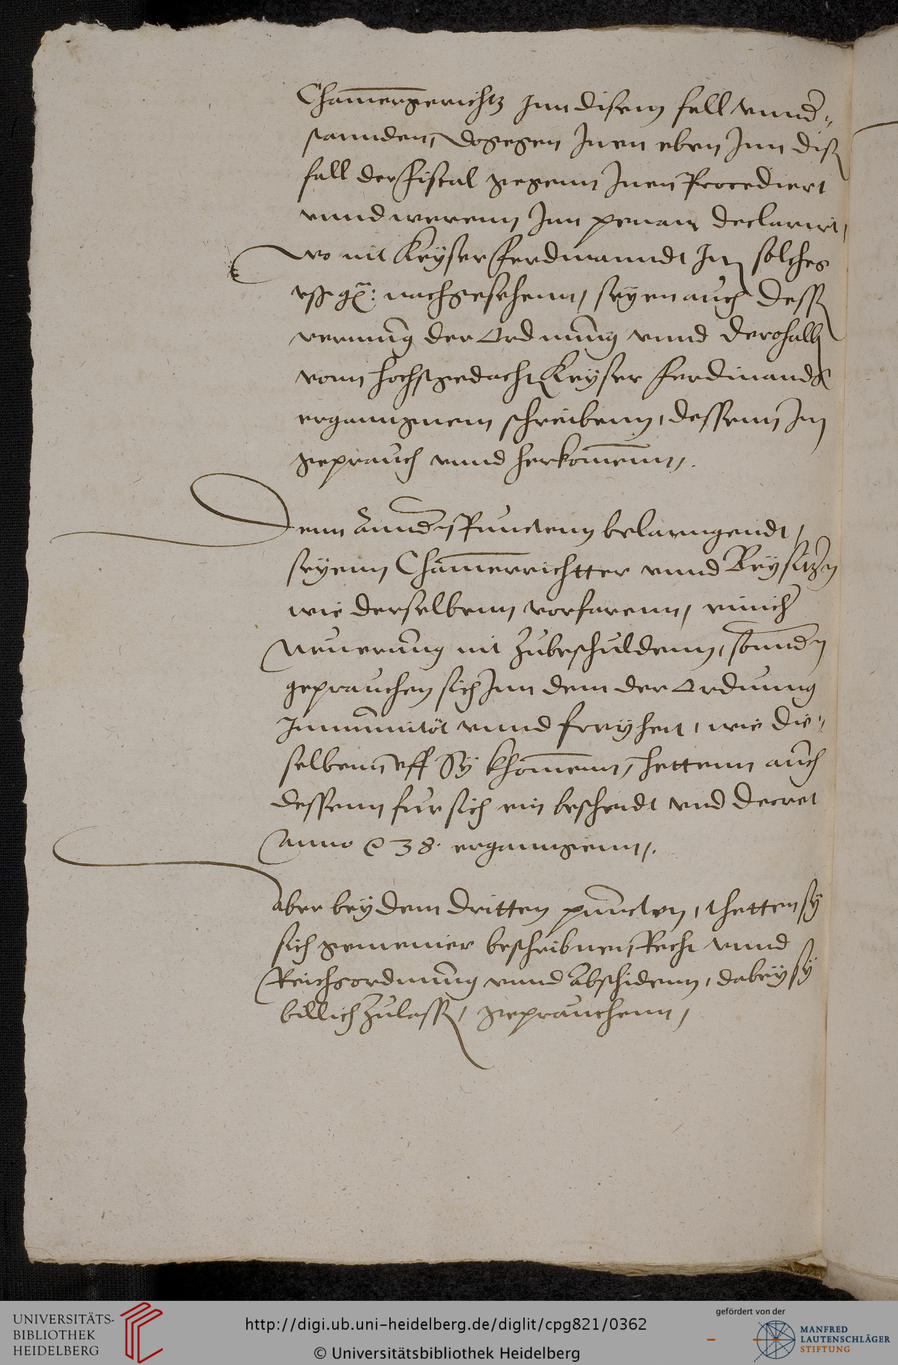 Chamergerichtz Inn disem fall vnnd-
stannden, Dogegen Inen eben Inn diß
fall der fiscal gegenn Inen Procediert
vnnd werenn Inn penam declarirt,
wo nit Keyser Ferdinanndt In solches
nachgesehenn, seyen auch deß
der Ordnung vnnd derohalb
vonn hochstgedacht Keyser Ferdinands
erganngnem schreibenn, dessenn Im
geprauch vnnd herkomenn,.
Denn Anndern Puncten belanngendt,
seyenn Chamerrichtter vnnd Beysitzer
wie derselbenn vorfarenn, einich
Neuerung nit zubeschuldenn, sonndern
geprauchen sich Inn dem der Ordnung
Immunitöt vnnd freyheit, wie die-
selbenn vff Sy khomenn, hettenn auch
dessenn fur sich ein bescheidt vnd Decret
Anno 38. erganngenn,.
Aber bey dem dritten puncten, thetten sy
sich gemeiner beschribnen Recht vnnd
Reichsordnung vnnd Abschidenn, dabey sy
billich zulassen, geprauchenn,
UNIVERSITÄTS-
BIBLIOTHEK
HEIDELBERG
http://digi.ub.uni-heidelberg.de/diglit/cpg821/0362
© Universitätsbibliothek Heidelberg
gefördert von der
MANFRED
LAUTENSCHLÄGER
STIFTUNG